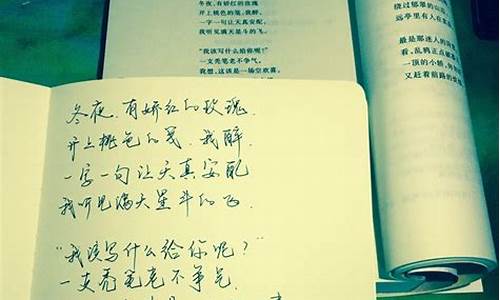 冬夜，有娇红的玫瑰
开上桃色的笺，我醉，
一字一句让天真安配，
我听见满天星斗的飞。
“我该写什么给你呢？”
一支秃笔老不争气，
我想，这该是一场空欢喜。
绕过郁翠的山
远亭里有人在
最是那迷人的
看，乱鸦正点
一顶的小轿，
又赶着前路的
冬夜，有娇红的玫瑰，
开上桃色的笺，我醉，
一字一句让天真安配
我听见满天星斗的飞.
“我该写什么给你呢？”
一支秃笔老不争气，